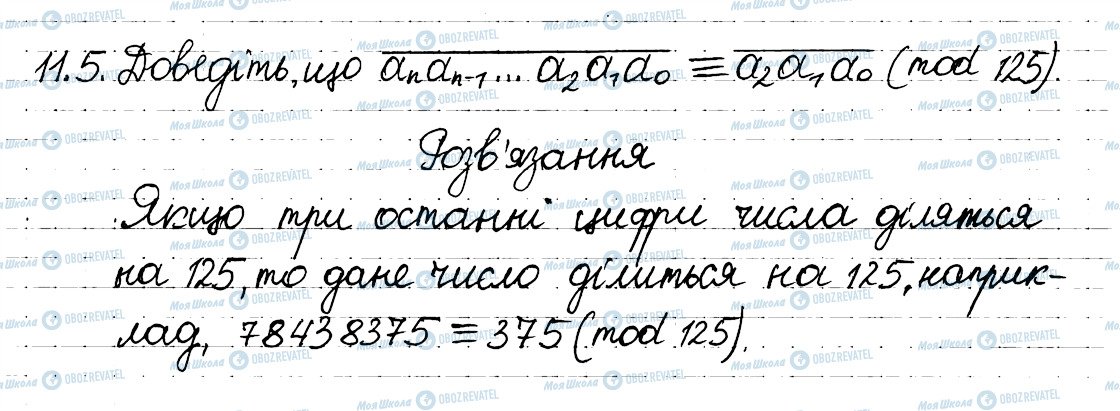 11.5. Доведіть, що a̅ₙa̅ₙ₋₁... a̅₂a̅₁a̅₀ ≡ a̅₂a̅₁a̅₀ (mod 125).
Розв'язання
Якщо три останні цифри числа діляться
на 125, то дане число ділиться на 125, наприк-
лад, 78438375 ≡ 375 (mod 125).